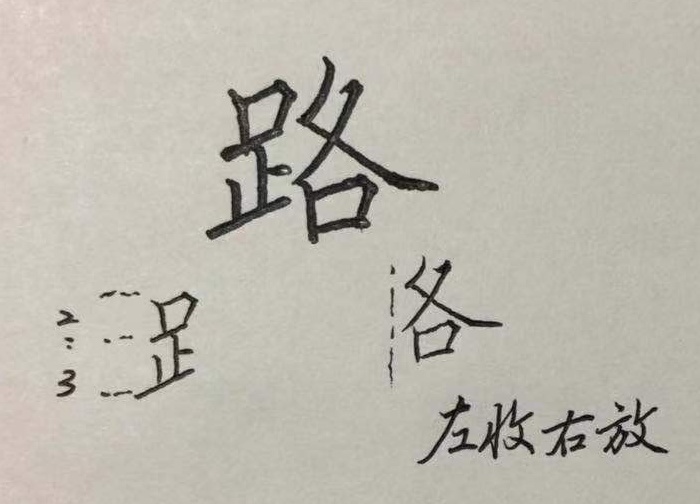 路
2
:
3
𧾷
各
左收右放